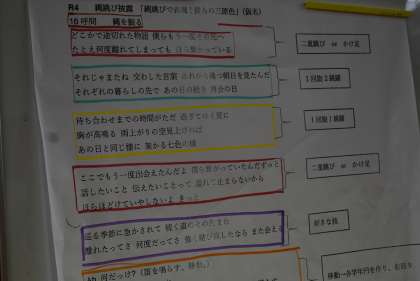 R4　縄跳び披露（縄跳びで表現と協力の三原色）（仮名）
10呼間　縄を振る
どこかで途切れた物語　僕らもう一度その先へ
たとえ何度離れてしまっても　ほら繋がっている
二重跳び　or　かけ足
それじゃまたね　交わした言葉　あれから幾つ朝日を見たんだ
それぞれの暮らしの先で　あの日の続き　再会の日
1回旋2跳躍
待ち合わせまでの時間がただ　過ぎてゆく度に
胸が高鳴る　雨上がりの空見上げれば
あの日と同じ様に　架かる七色の橋
1回旋1跳躍
ここでもう一度出会えたんだよ　僕ら繋がっていたんだずっと
話したいこと　伝えたいことって　溢れて止まらないから
ほらほどけていやしないよ　きっと
二重跳び　or　かけ足
巡る季節に急かされて　続く道のその先また
離れたってさ　何度だってさ　強く結び直したなら　また会える
好きな技
何だっけ？（笛を鳴らす、移動。）
移動→各学年円を作り、